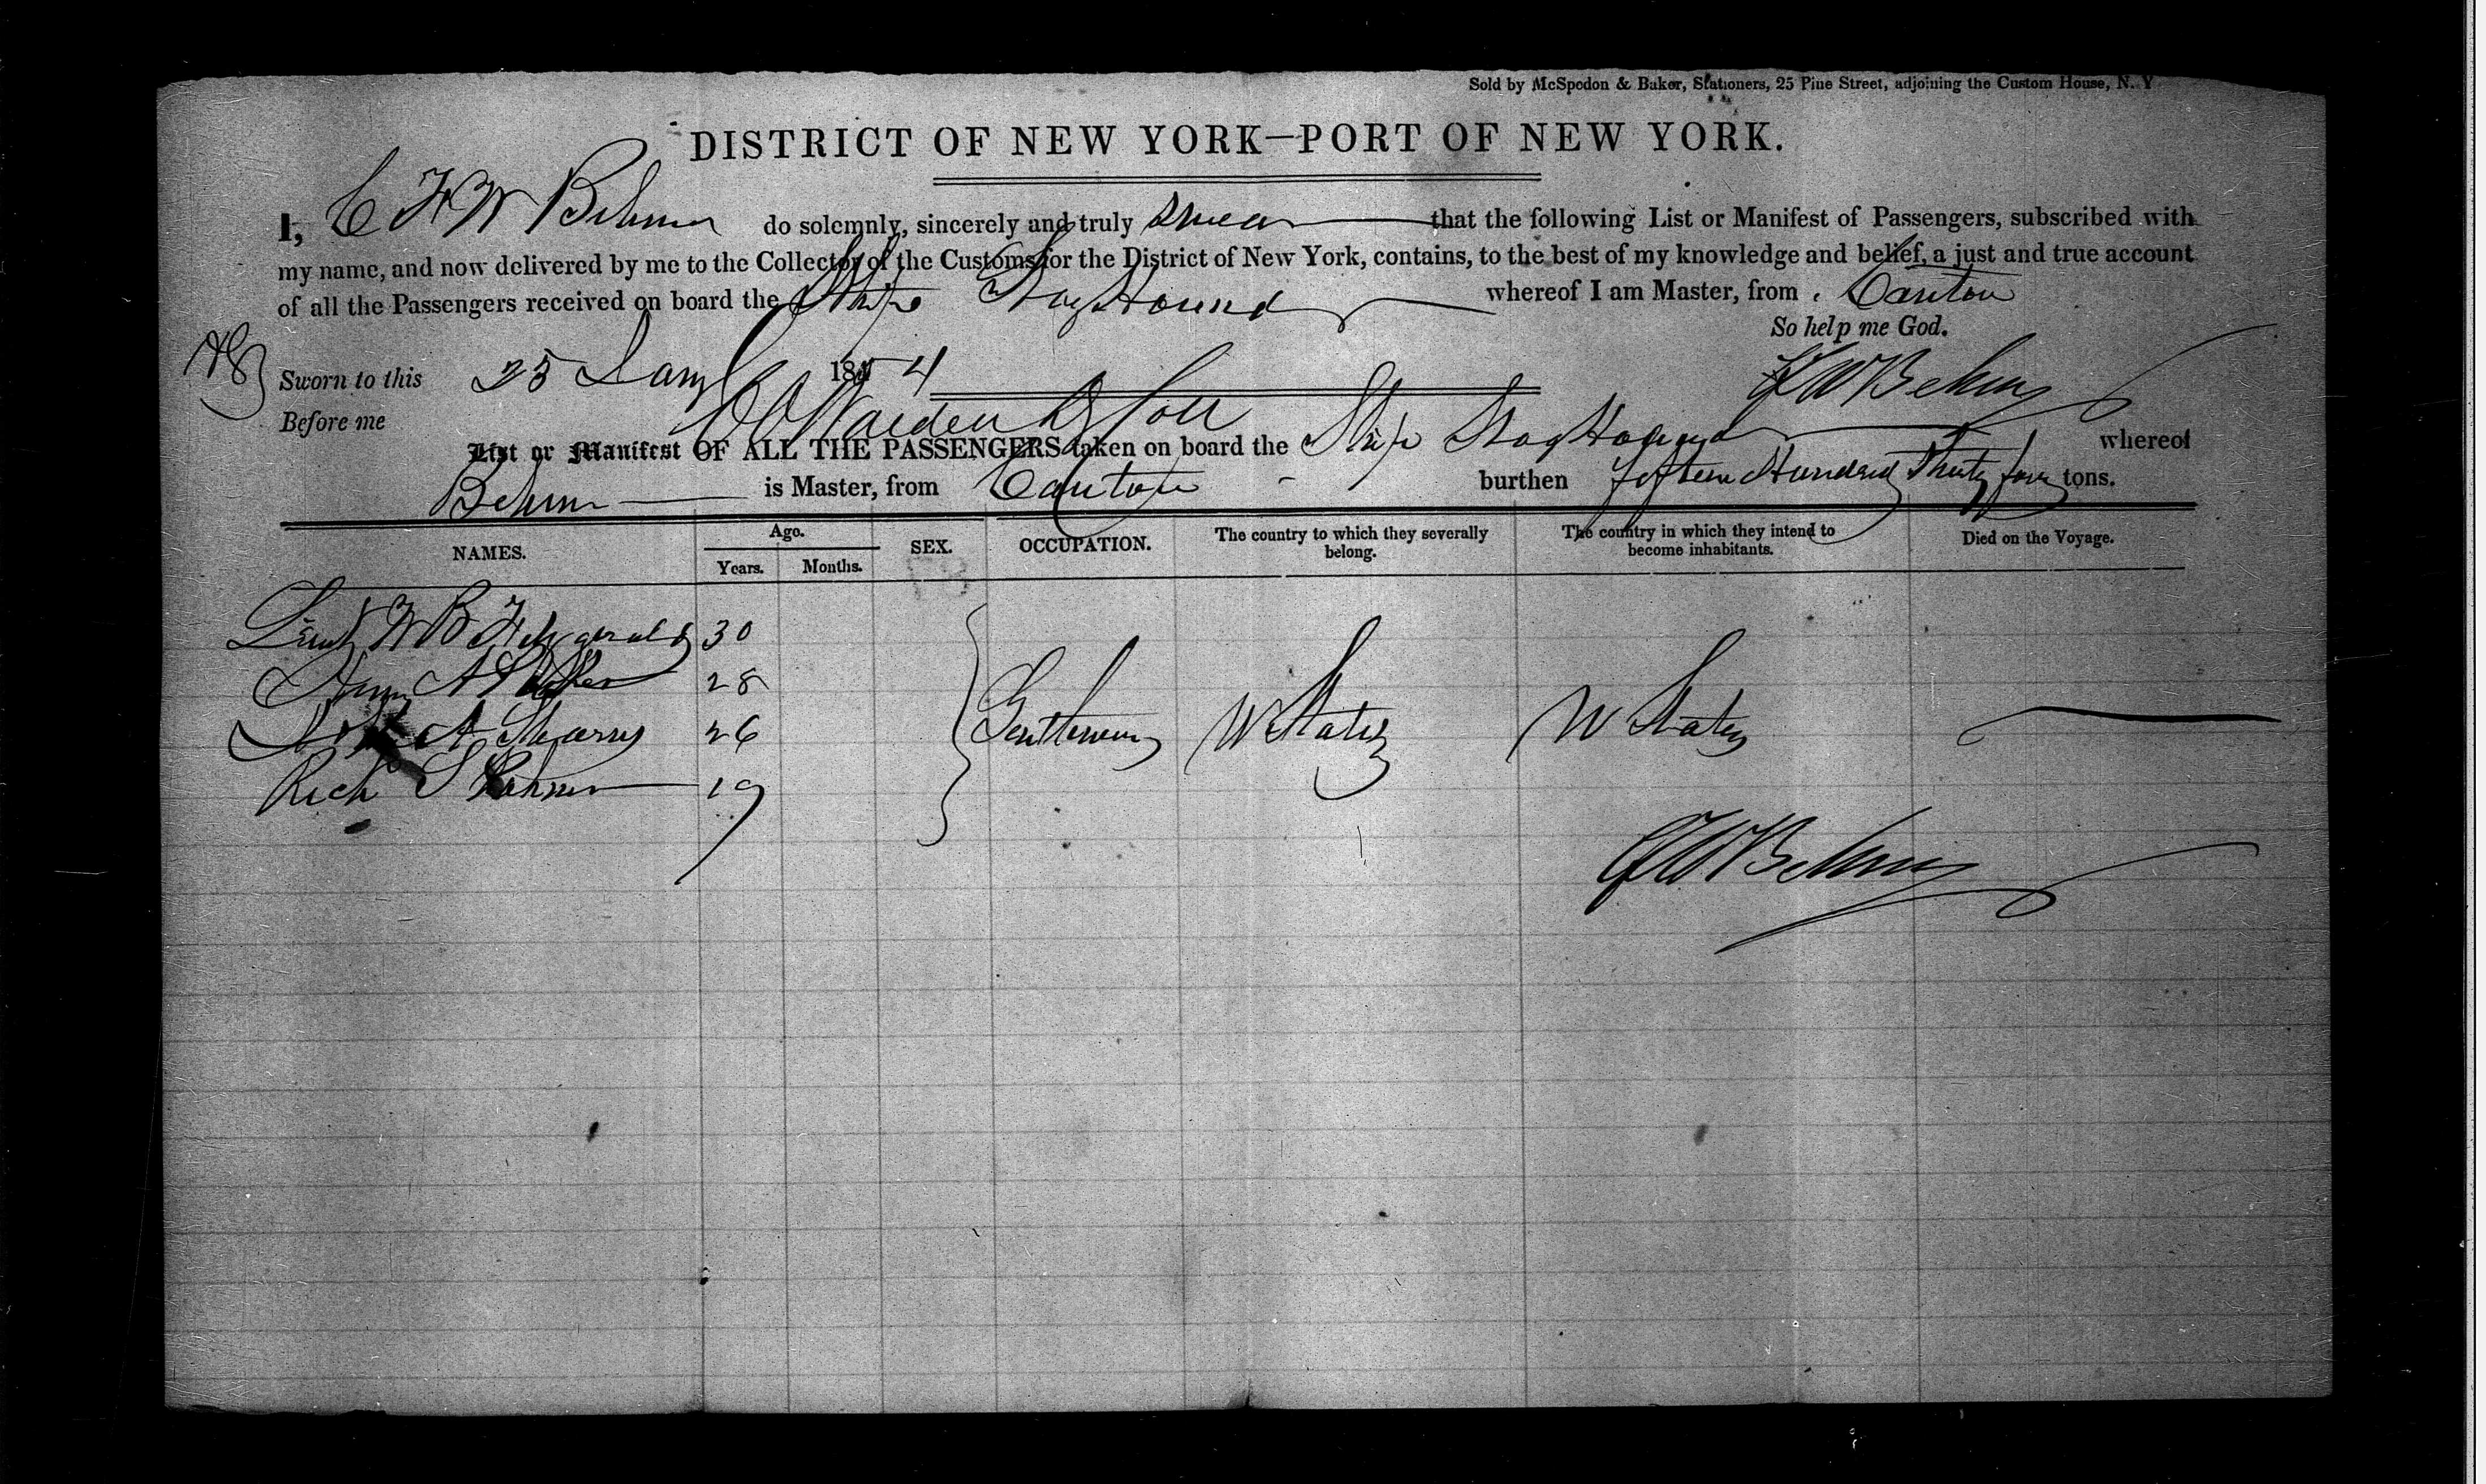 Sold by McSpedon & Baker, Stationers, 25 Pine Street, adjoining the Custom House, N. Y
DISTRICT OF NEW YORK—PORT OF NEW YORK.
I, C F W Behm do solemnly, sincerely and truly swear that the following List or Manifest of Passengers, subscribed with
my name, and now delivered by me to the Collector of the Customs for the District of New York, contains, to the best of my knowledge and belief, a just and true account
of all the Passengers received on board the Ship Stag Hound whereof I am Master, from Canton
So help me God.
Sworn to this 25 Jany 1854
Before me
List or Manifest OF ALL THE PASSENGERS taken on board the Ship Stag Hound whereof
Behm is Master, from Canton burthen fifteen Hundred Thirty four tons.
NAMES. Age. Years. Months. SEX. OCCUPATION. The country to which they severally belong. The country in which they intend to become inhabitants. Died on the Voyage.
Lieut W B Fitzgerald 30
A 28
A 26 Gentlemen U States U States
Rich S 19